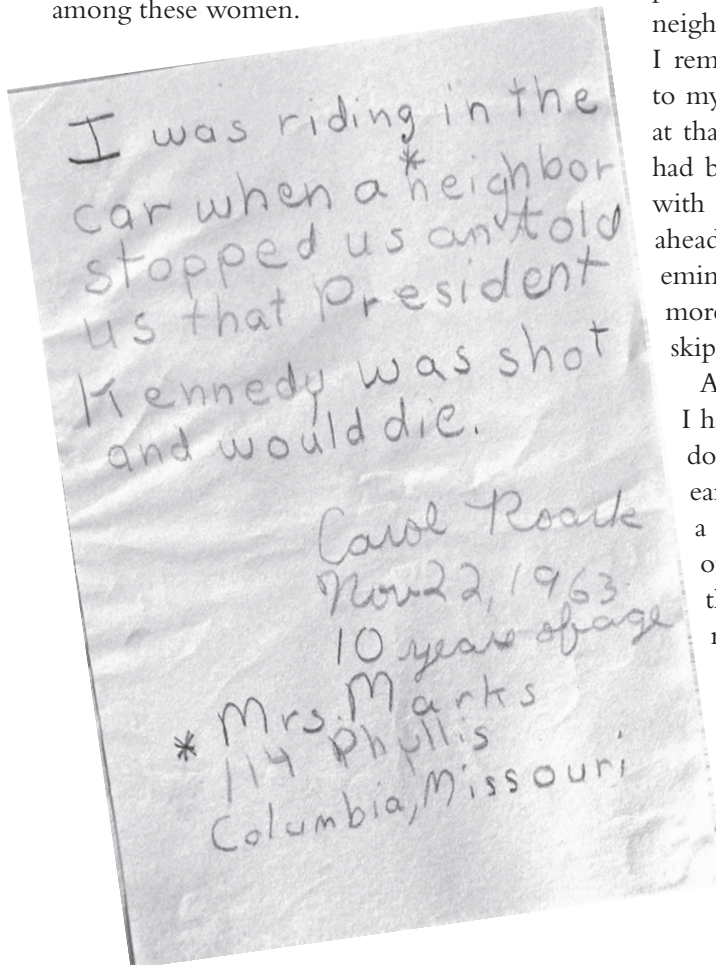 among these women.
I was riding in the
car when a *neighbor
stopped us an told
us that President
Kennedy was shot
and would die.
Carol Roark
Nov 22, 1963
10 years of age
* Mrs. Marks
114 Phyllis
Columbia, Missouri
neigh
I rem
to my
at tha
had b
with
ahead
emin
more
skip
A
I h
do
ear
a
o
th